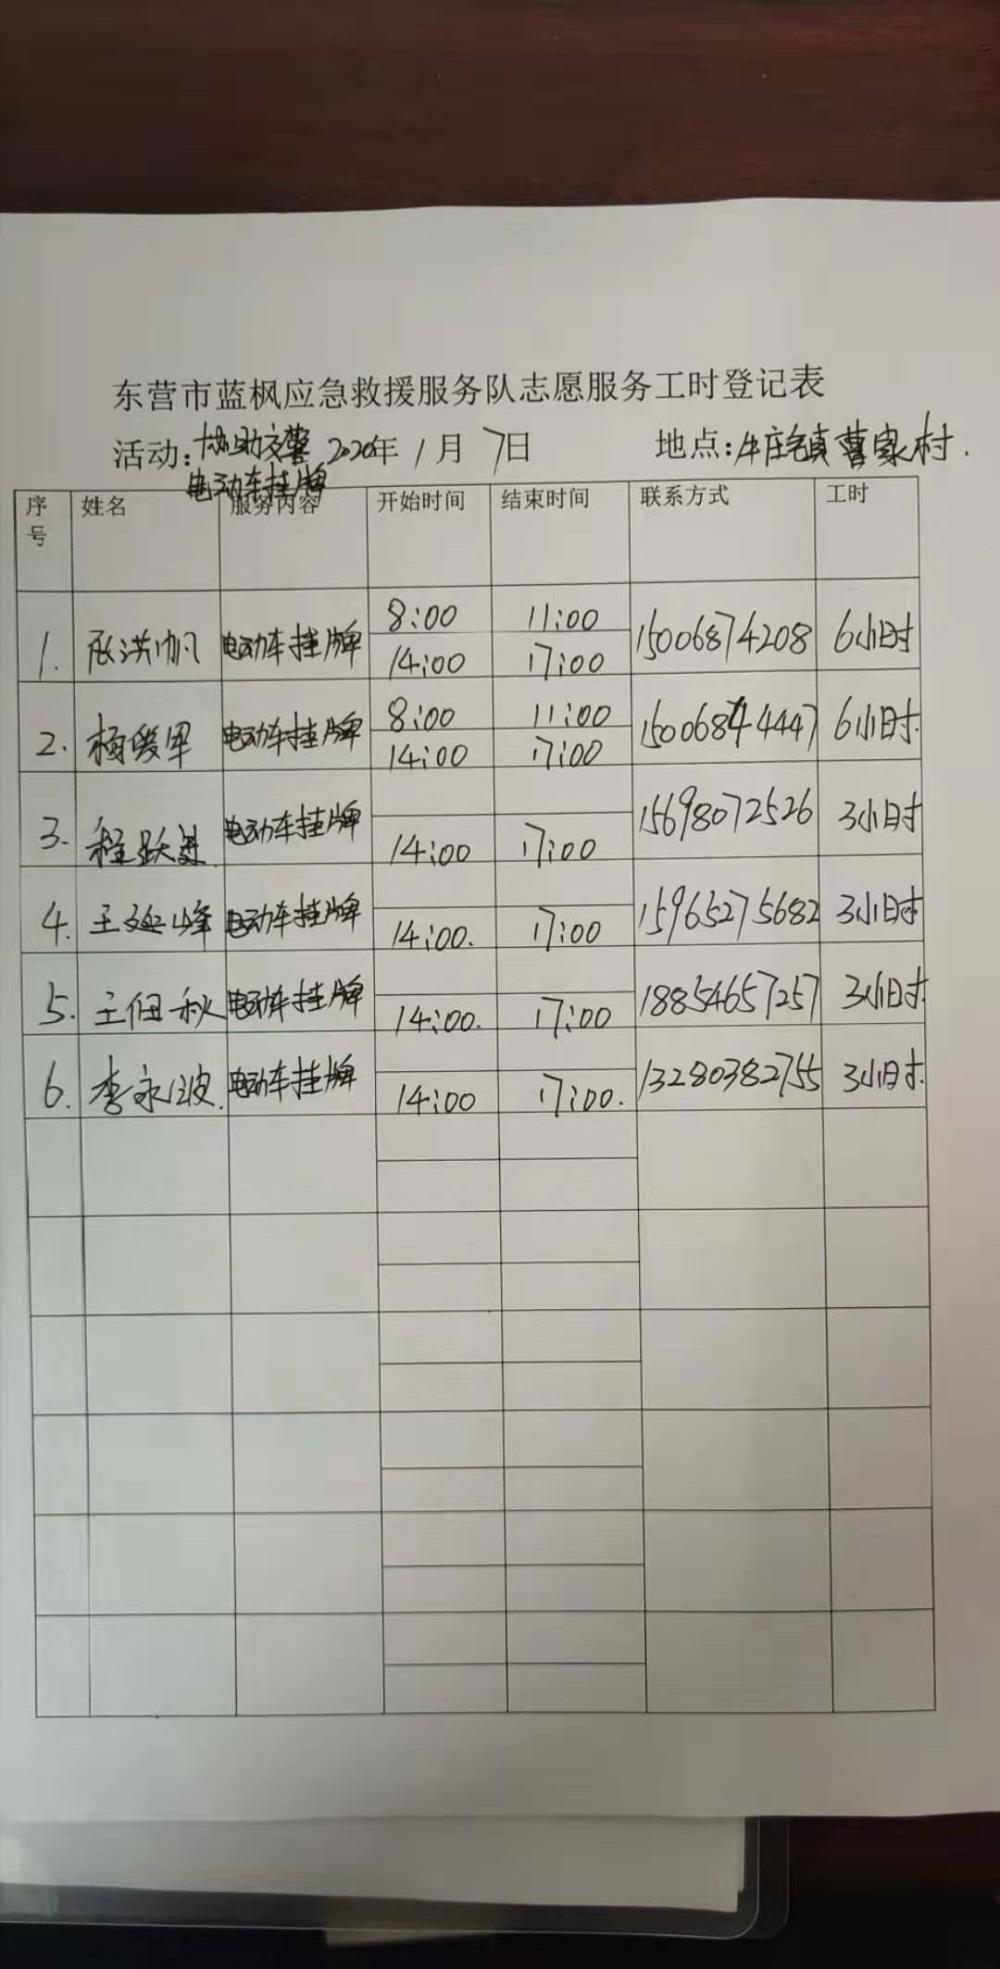 东营市蓝枫应急救援服务队志愿服务工时登记表
活动:协助交警电动车挂牌 2020年1月7日 地点:牛庄镇曹家村.
序号 姓名 服务内容 开始时间 结束时间 联系方式 工时
1. 张洪帆 电动车挂牌 8:00 11:00 15006874208 6小时
14:00 17:00
2. 杨 电动车挂牌 8:00 11:00 15006844447 6小时.
14:00 17:00
3. 程跃进. 电动车挂牌 15698072526 3小时
14:00 17:00
4. 王延峰 电动车挂牌 15965275682 3小时
14:00. 17:00
5. 王佃秋 电动车挂牌 18854657257 3小时.
14:00. 17:00
6. 李永波. 电动车挂牌 13280382755 3小时.
14:00 17:00.